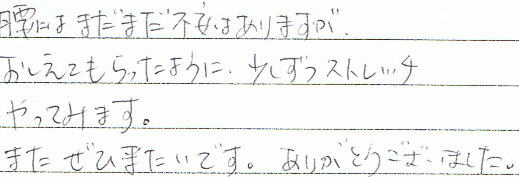 腰にはまだまだ不安はありますが、
おしえてもらったように、少しずつストレッチ
やってみます。
またぜひ来たいです。ありがとうございました。